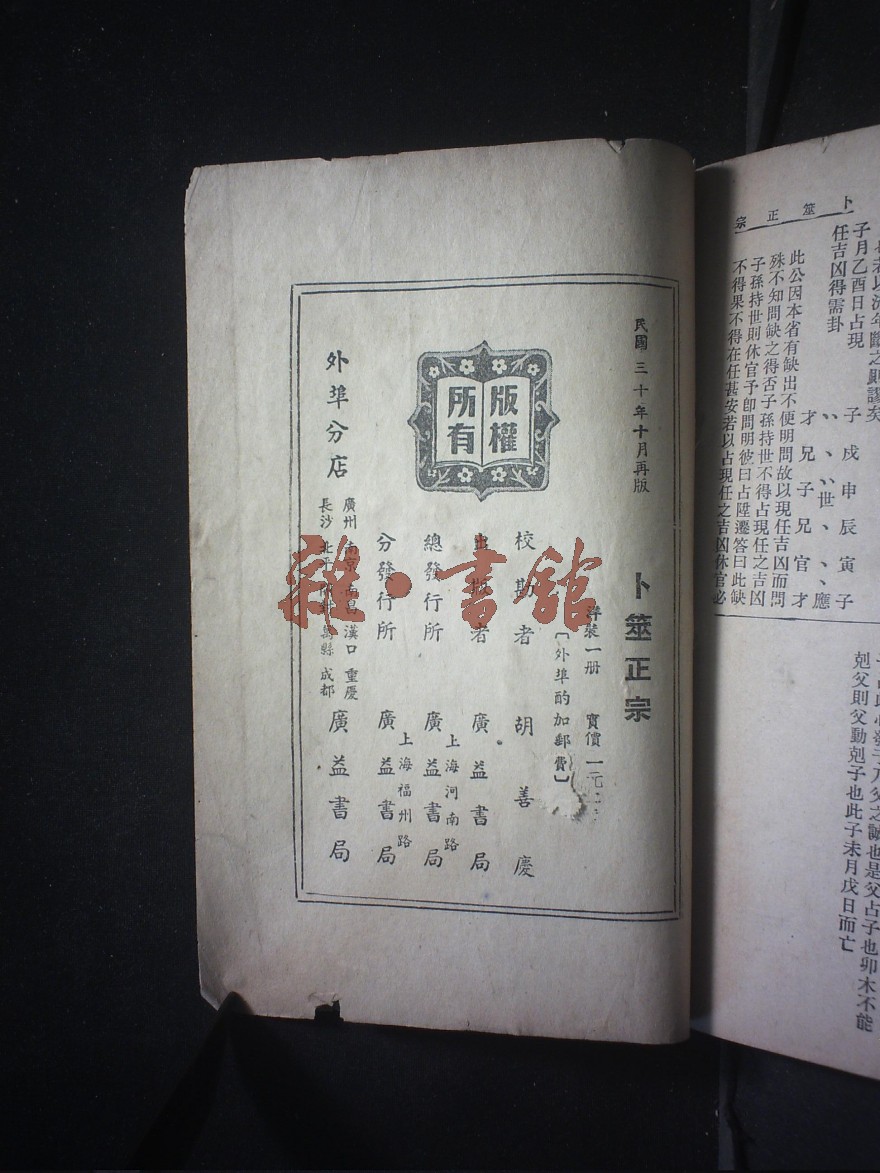 卜筮正宗
子月乙酉日占現
任吉凶得需卦
子戌申辰寅子
世 應
才兄子兄官才
此公因本省有缺出不便明問故以現任吉凶而問
殊不知問缺之得否子孫持世不得占現任之吉凶
子孫持世則休官予卽問明彼曰占陞遷答曰此缺
不得果不得在任甚安若以占現任之吉凶休官必
剋父則父動剋子也此子未月戊日而亡
民國三十年十月再版
卜筮正宗
裝一册 實價
〔外埠酌加郵費〕
版權所有
校勘者 胡善慶
出版者 廣益書局
上海河南路
總發行所 廣益書局
上海福州路
分發行所 廣益書局
廣州 南京 南昌 漢口 重慶
長沙 北平 縣 成都
外埠分店 廣益書局
雜·書館